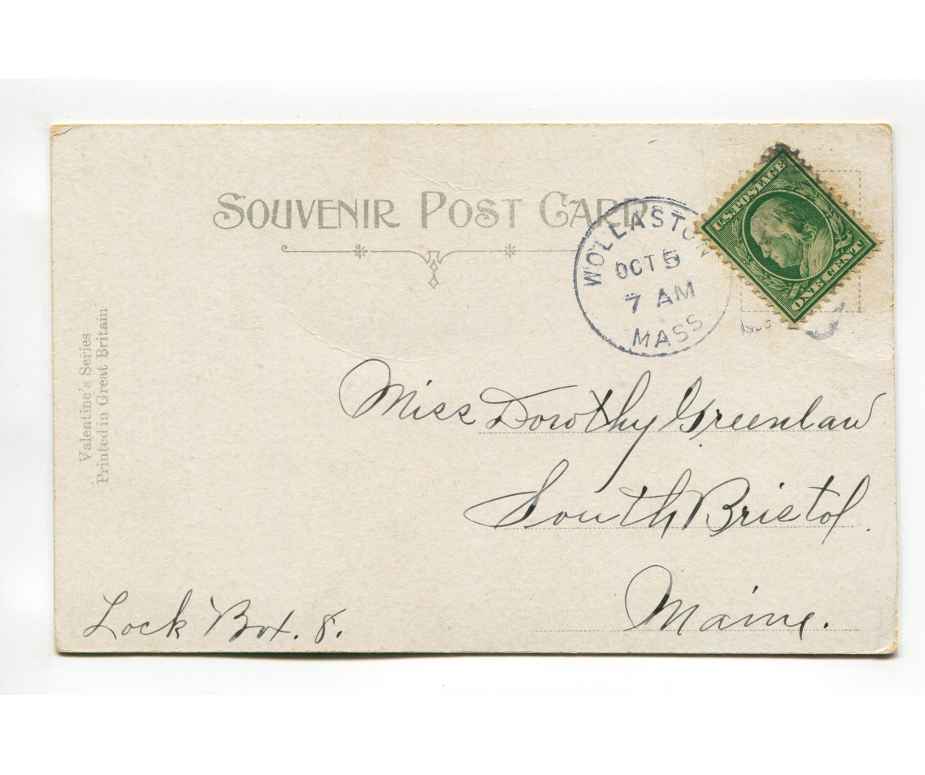 SOUVENIR POST CARD
WOLLASTO
OCT 5
7 AM
MASS
U.S. POSTAGE
ONE CENT
Valentine's Series
Printed in Great Britain
Miss Dorothy Greenlaw
South Bristol.
Maine.
Lock Box. 8.